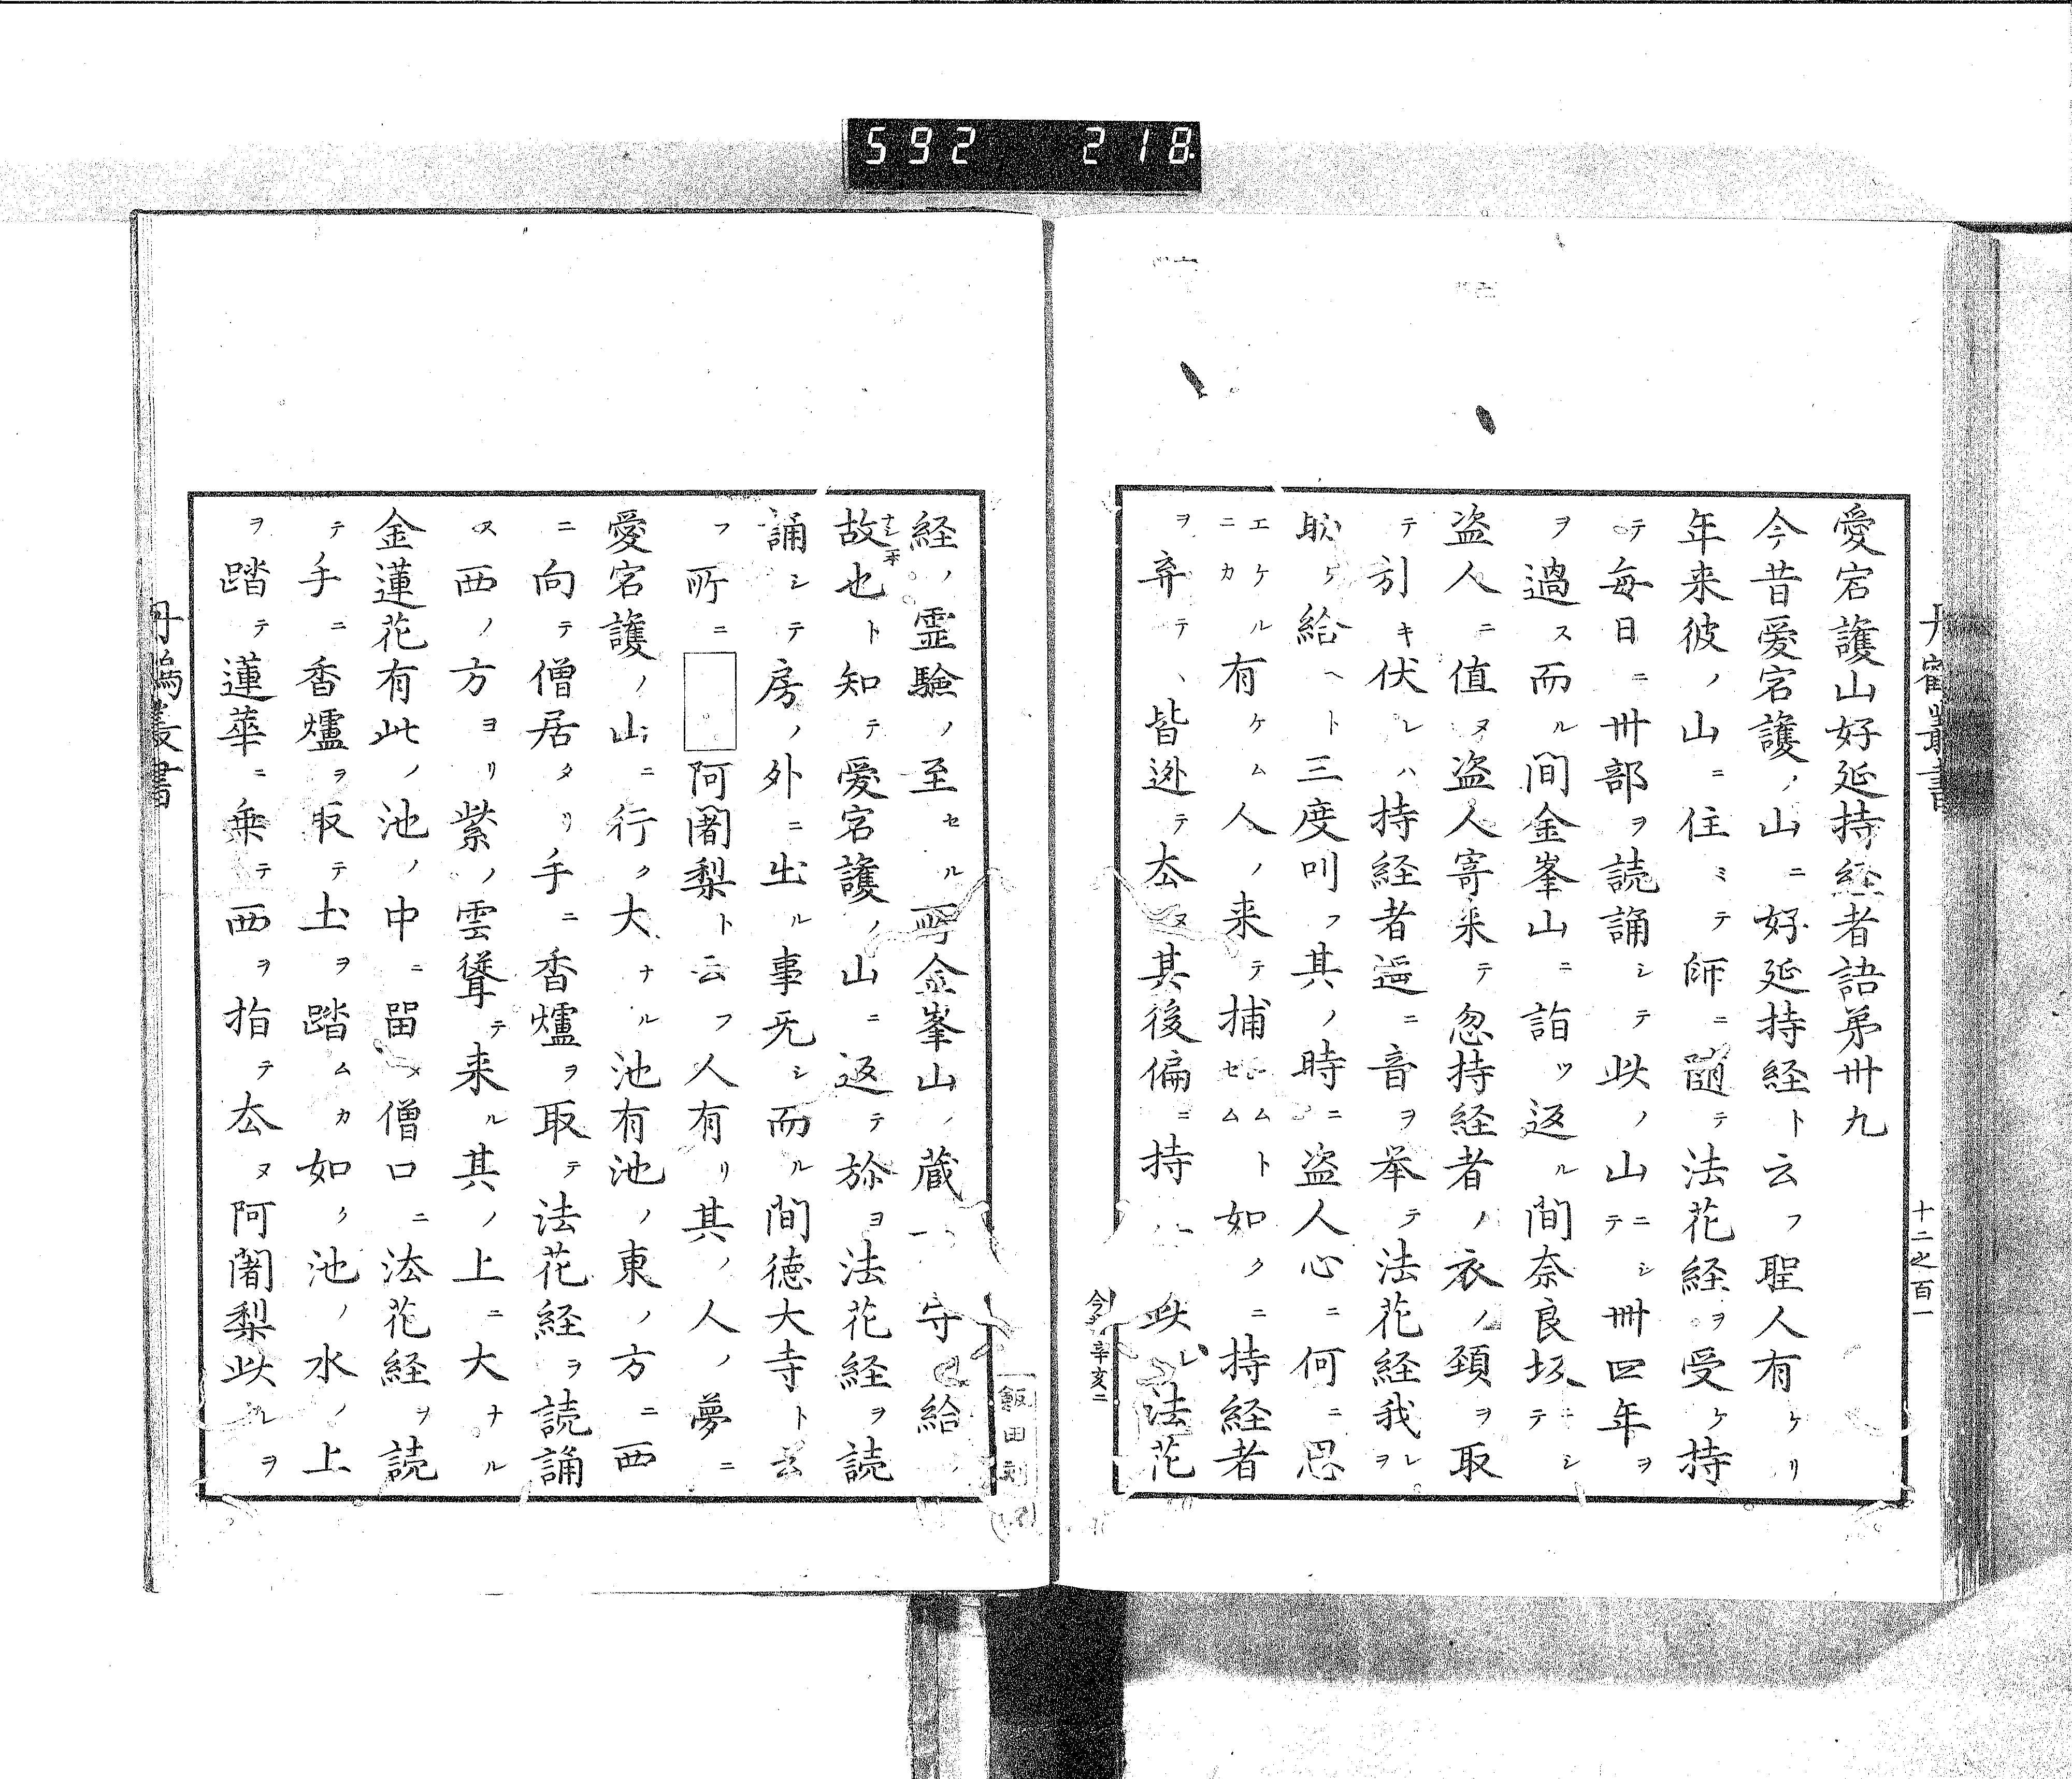 592 218
十二之百一
愛宕護山好延持経者語第卅九
今昔愛宕護ノ山ニ好延持経ト云フ聖人有ケリ
年来彼ノ山ニ住ミテ師ニ随テ法花経ヲ受ケ持
テ毎日ニ卅部ヲ読誦シテ此ノ山ニシテ卌四年ヲ
ヲ過ス而ル間金峯山ニ詣ツ返ル間奈良坂ニシテ
盗人ニ値ヌ盗人寄来テ忽持経者ノ衣ノ頚ヲ取
テ引キ伏レハ持経者遥ニ音ヲ挙テ法花経我レヲ
助ケ給ヘト三度叫フ其ノ時ニ盗人心ニ何ニ思
エケルニカ有ケム人ノ来テ捕セムシムト如クニ持経者
ヲ弃テ皆迯テ去ヌ其後偏ニ持 此レ法花
今 辛亥二
経ノ霊験ノ至セル所金峯山ノ蔵 守給
故也ト知テ愛宕護ノ山ニ返テ弥ヨ法花経ヲ読
誦シテ房ノ外ニ出ル事无シ而ル間徳大寺ト云
フ所ニ 阿闍梨ト云フ人有リ其ノ人ノ夢ニ
愛宕護ノ山ニ行ク大ナル池有池ノ東ノ方ニ西
ニ向テ僧居タリ手ニ香爐ヲ取テ法花経ヲ読誦
ス西ノ方ヨリ紫ノ雲聳テ来ル其ノ上ニ大ナル
金蓮花有此ノ池ノ中ニ留ヌ僧口ニ法花経ヲ読
テ手ニ香爐ヲ取テ土ヲ踏ムカ如ク池ノ水ノ上
ヲ踏テ蓮華ニ乗テ西ヲ指テ去ヌ阿闍梨此レヲ
飯田刻